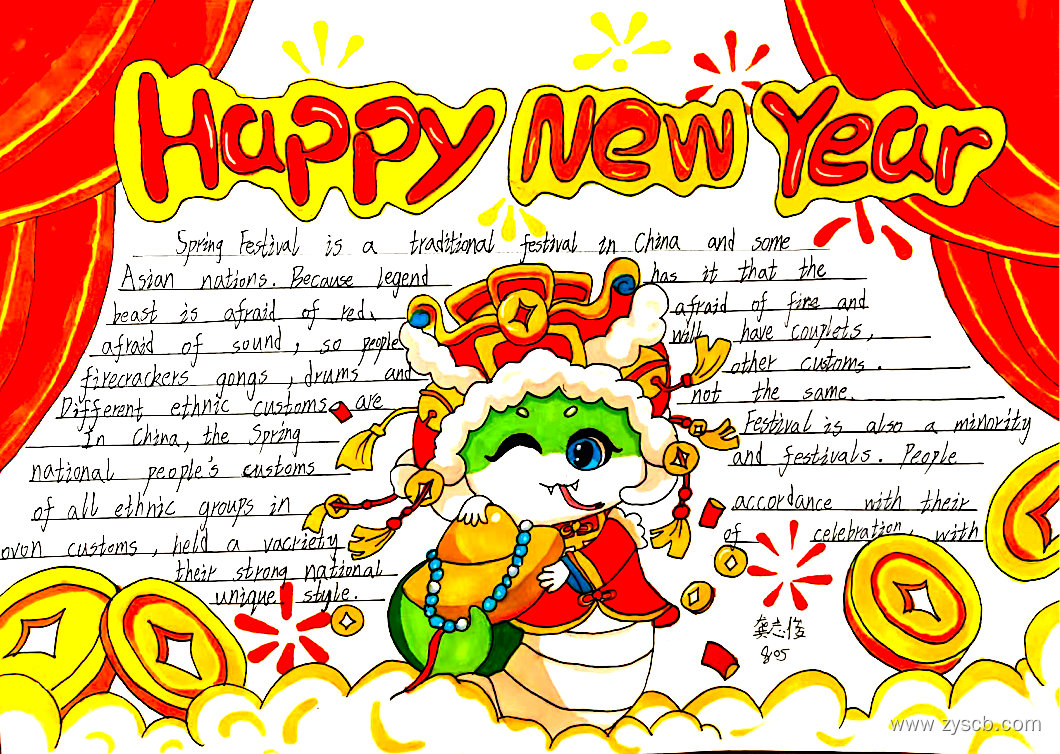 Happy New Year
Spring Festival is a traditional festival in China and some
Asian nations. Because legend has it that the
beast is afraid of red, afraid of fire and
afraid of sound, so people will have couplets,
firecrackers gongs, drums and other customs.
Different ethnic customs are not the same.
In China, the Spring Festival is also a minority
national people's customs and festivals. People
of all ethnic groups in accordance with their
ovon customs, held a vacriety of celebration, with
their strong national
unique style.
龚志
805
www.zyscb.com